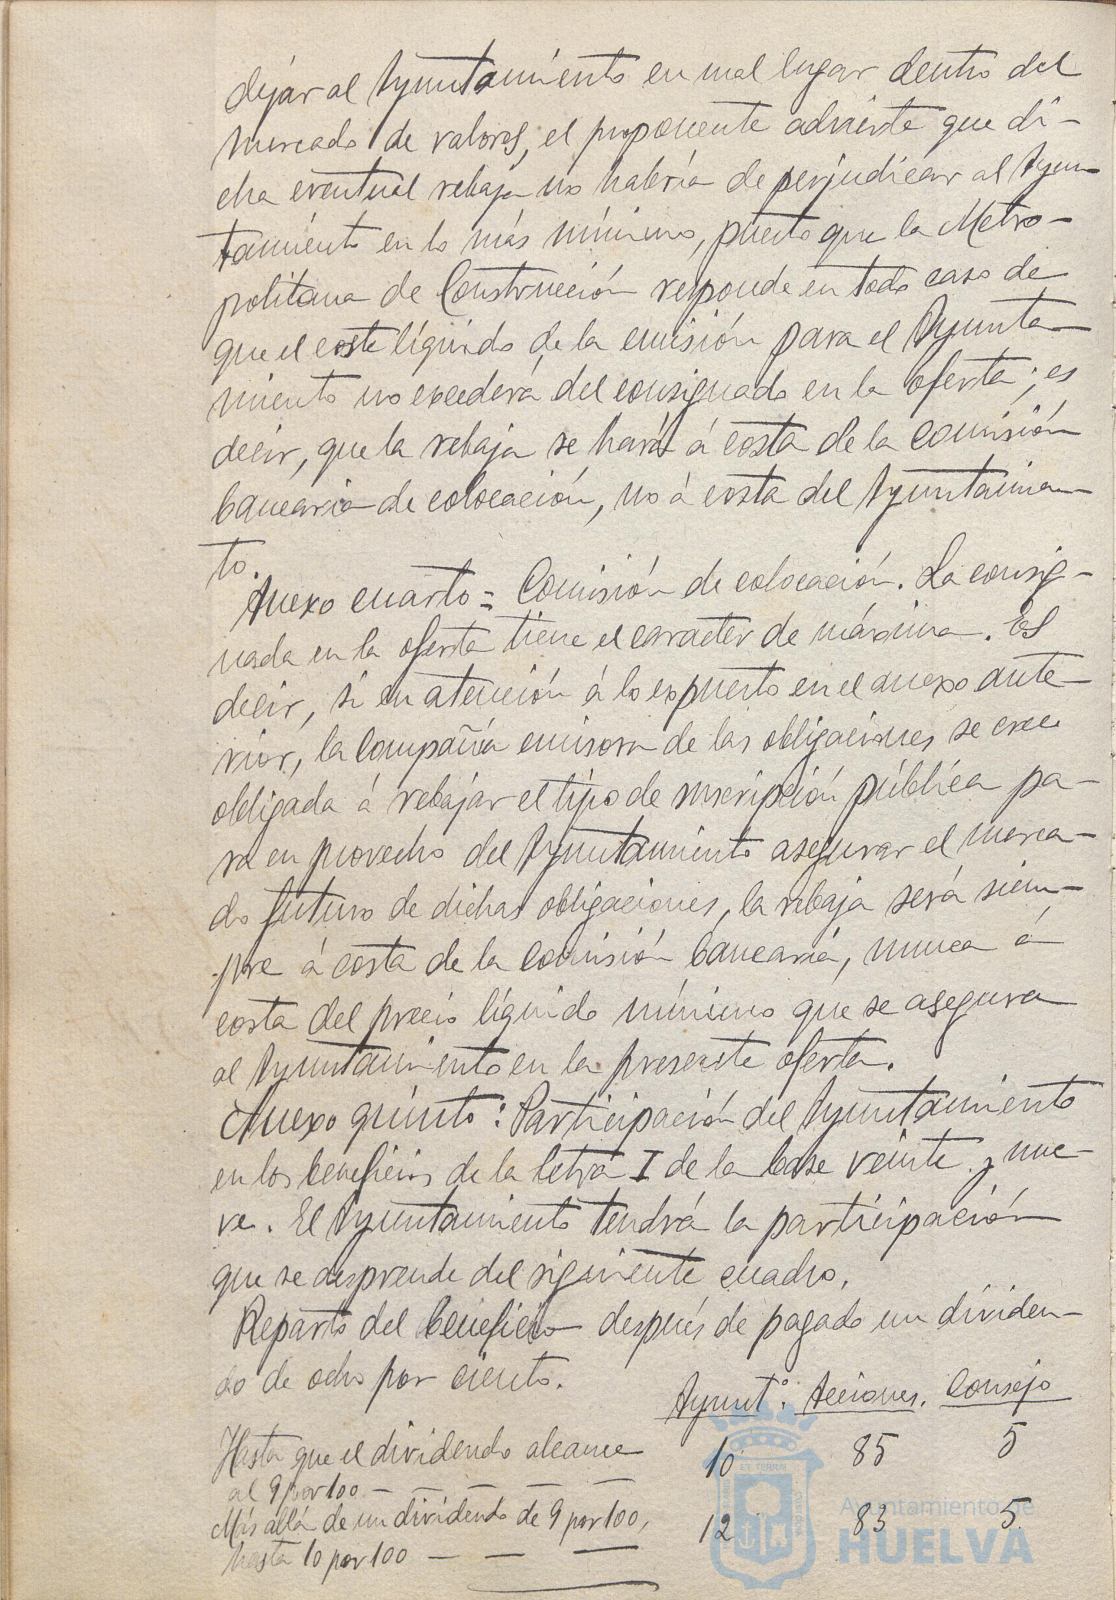 dejar al Ayuntamiento en mal lugar dentro del
mercado de valores, el proponente advierte que di-
cha eventual rebaja no habría de perjudicar al Ayun-
tamiento en lo más mínimo, puesto que la Metro-
politana de Construcción responde en todo caso de
que el coste líquido de la emisión para el Ayunta-
miento no excederá del consignado en la oferta; es
decir, que la rebaja se hará á costa de la comisión
bancaria de colocación, no á costa del Ayuntamien-
to.
Anexo cuarto = Comisión de colocación. La consig-
nada en la oferta tiene el caracter de máxima. Es
decir, si en atención á lo expuesto en el anexo ante-
rior, la Compañía emisora de las obligaciones se cree
obligada á rebajar el tipo de suscripción pública pa-
ra en provecho del Ayuntamiento asegurar el merca-
do futuro de dichas obligaciones, la rebaja será siem-
pre á costa de la comisión bancaria, nunca á
costa del precio líquido mínimo que se asegura
al Ayuntamiento en la presente oferta.
Anexo quinto: Participación del Ayuntamiento
en los beneficios de la letra I de la base veinte y nue-
ve. El Ayuntamiento tendrá la participación
que se desprende del siguiente cuadro.
Reparto del beneficio después de pagado un dividen-
do de ocho por ciento.
Ayuntº. Acciones. Consejo
Hasta que el dividendo alcance
al 9 por 100 — — — — 10 85 5
Más allá de un dividendo de 9 por 100,
hasta 10 por 100 — — — 12 83 5
Ayuntamiento de
HUELVA